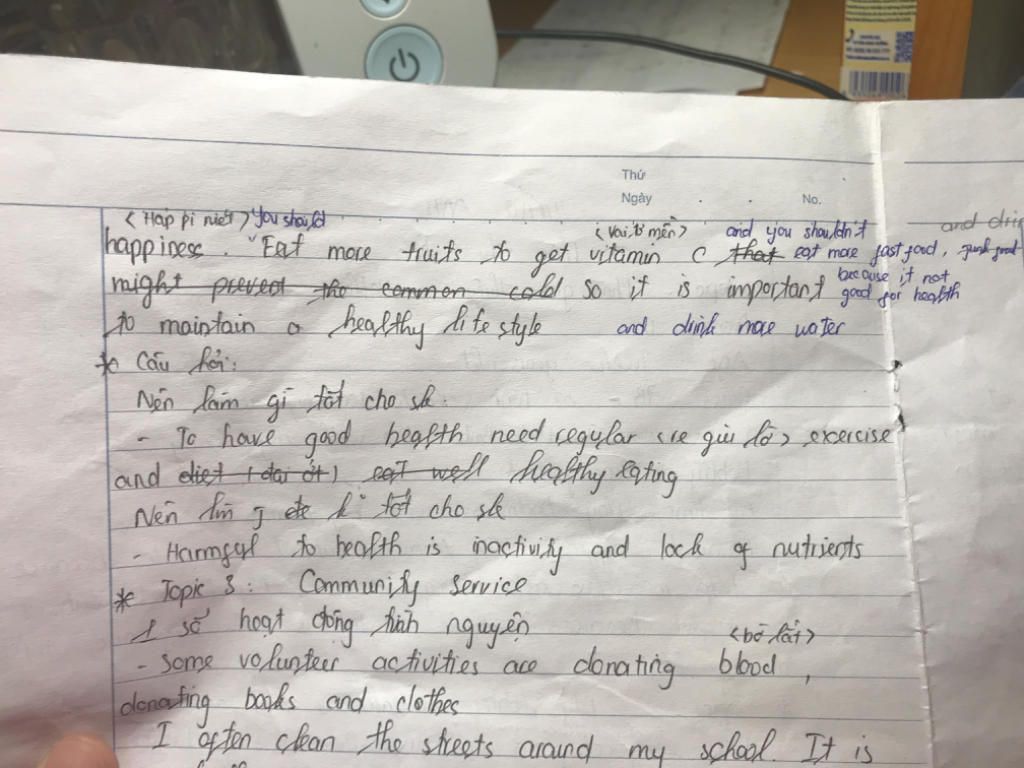 Thứ
Ngày . . No.
<Hap pi niet> You should
happiness. Eat more fruits to get vitamin C that eat more fastfood, junk food
<Vai tơ mền> and you shouldn't
and drin
might prevent the common cold so it is important because it not
good for health
to maintain a healthy lifestyle and drink more water
* Câu hỏi:
Nên làm gì tốt cho sk.
- To have good health need regular <re giu lờ> exercise
and diet (đai ớt) eat well healthy eating
Nên làm j để k tốt cho sk
- Harmful to health is inactivity and lack of nutrients
* Topic 3: Community Service
1 số hoạt động tình nguyện
<bờ lất>
- Some volunteer activities are donating blood,
donating books and clothes
I often clean the streets around my school. It is